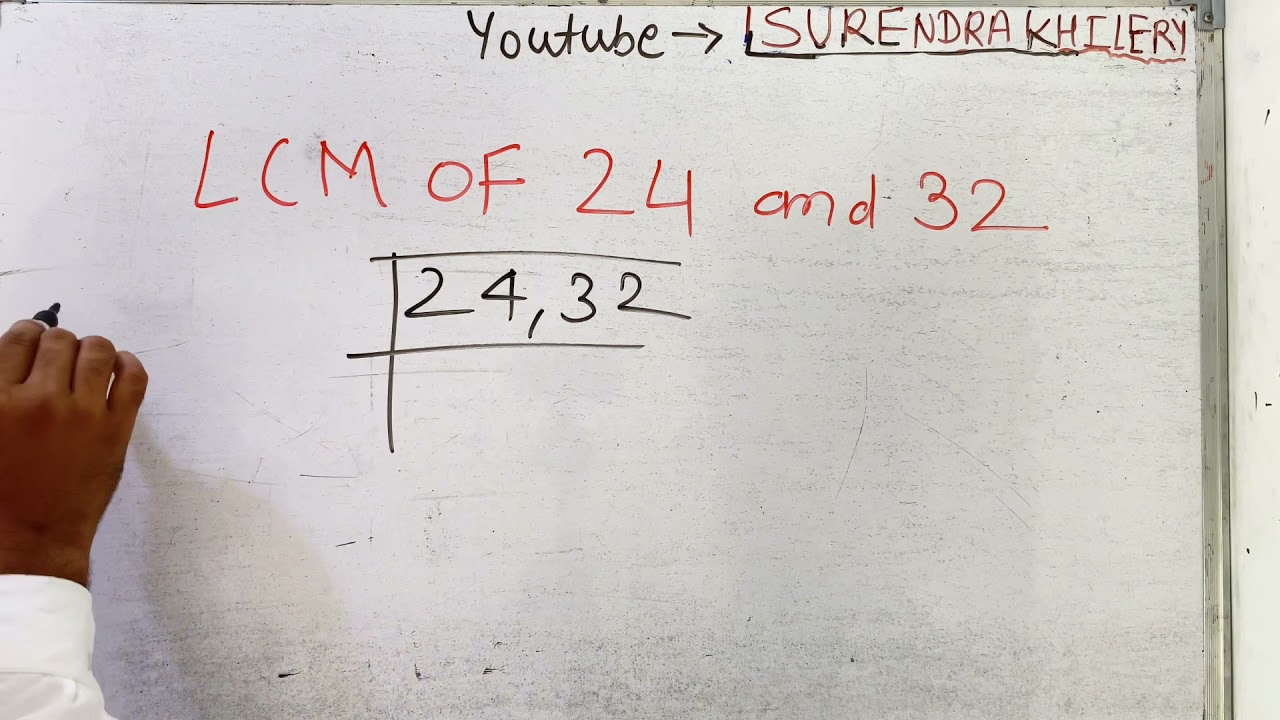 Youtube → SURENDRA KHILERY
LCM OF 24 and 32
24,32